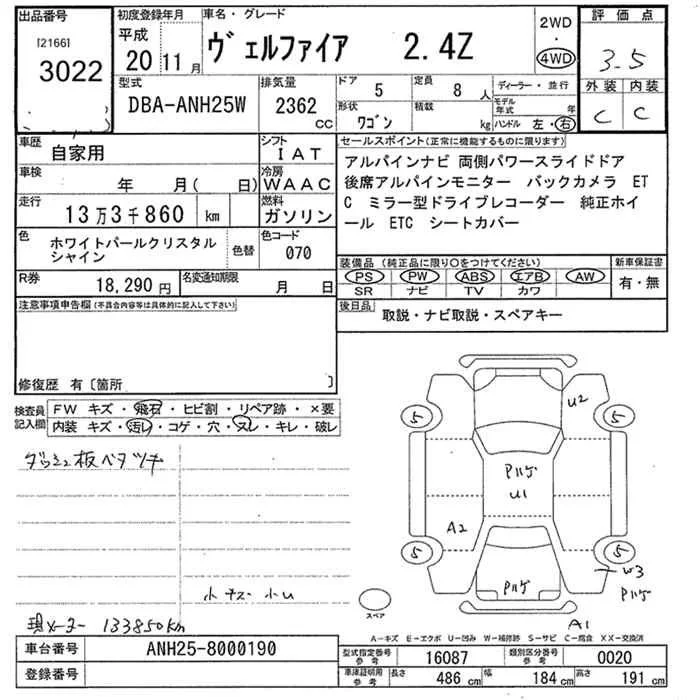 出品番号
[2166]
3022
初度登録年月
平成
20 11月
車名・グレード
ヴェルファイア 2.4Z
2WD
・
4WD
評価点
3.5
外装 内装
C C
型式
DBA-ANH25W
排気量
2362
cc
ドア
5
定員
8 人
形状
ワゴン
積載
kg
ディーラー・並行
モデル年式 年
ハンドル 左・右
車歴
自家用
シフト
IAT
車検
年 月( 日)
冷房
WAAC
走行
13万3千860 km
燃料
ガソリン
色
ホワイトパールクリスタル
シャイン
色替
色コード
070
R券
18,290 円
名変通知期限
月 日
セールスポイント(正常に機能するものに限ります)
アルパインナビ 両側パワースライドドア
後席アルパインモニター バックカメラ ET
C ミラー型ドライブレコーダー 純正ホイ
ール ETC シートカバー
装備品(純正品に限り○をつけてください)
PS PW ABS エアB AW
SR ナビ TV カワ
新車保証書
有・無
後日品
取説・ナビ取説・スペアキー
注意事項申告欄(不具合内容等は具体的に記入して下さい)
修復歴 有〔箇所 〕
検査員
記入欄
FW キズ・飛石・ヒビ割・リペア跡・×要
内装 キズ・汚レ・コゲ・穴・スレ・キレ・破レ
ダッシュ板ベタツキ
小キズ 小U
現メーター 133850km
5
5
5
5
U2
Pハゲ
U1
A2
Pハゲ
W3
Pハゲ
A1
スペア
A−キズ E−エクボ U−凹み W−補修跡 S−サビ C−腐食 XX−交換済
車台番号
ANH25-8000190
登録番号
型式指定番号
参考
16087
類別区分番号
参考
0020
車庫証明用
参考
長さ
486 cm
幅
184 cm
高さ
191 cm